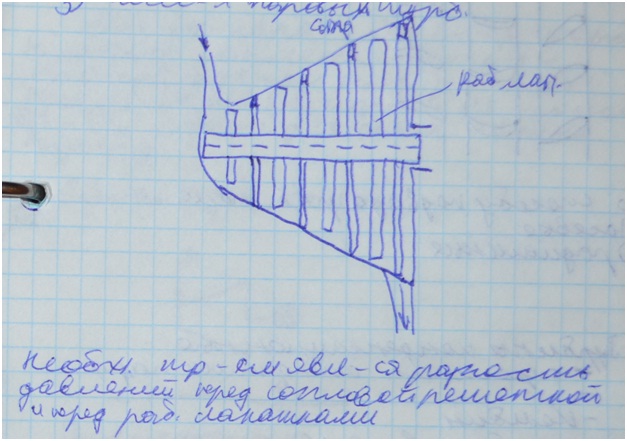 паровых турб.
сопла
раб лап.
Необх. тр-ем явл-ся разность
давлений перед сопловой решеткой
и перед раб. лапатками